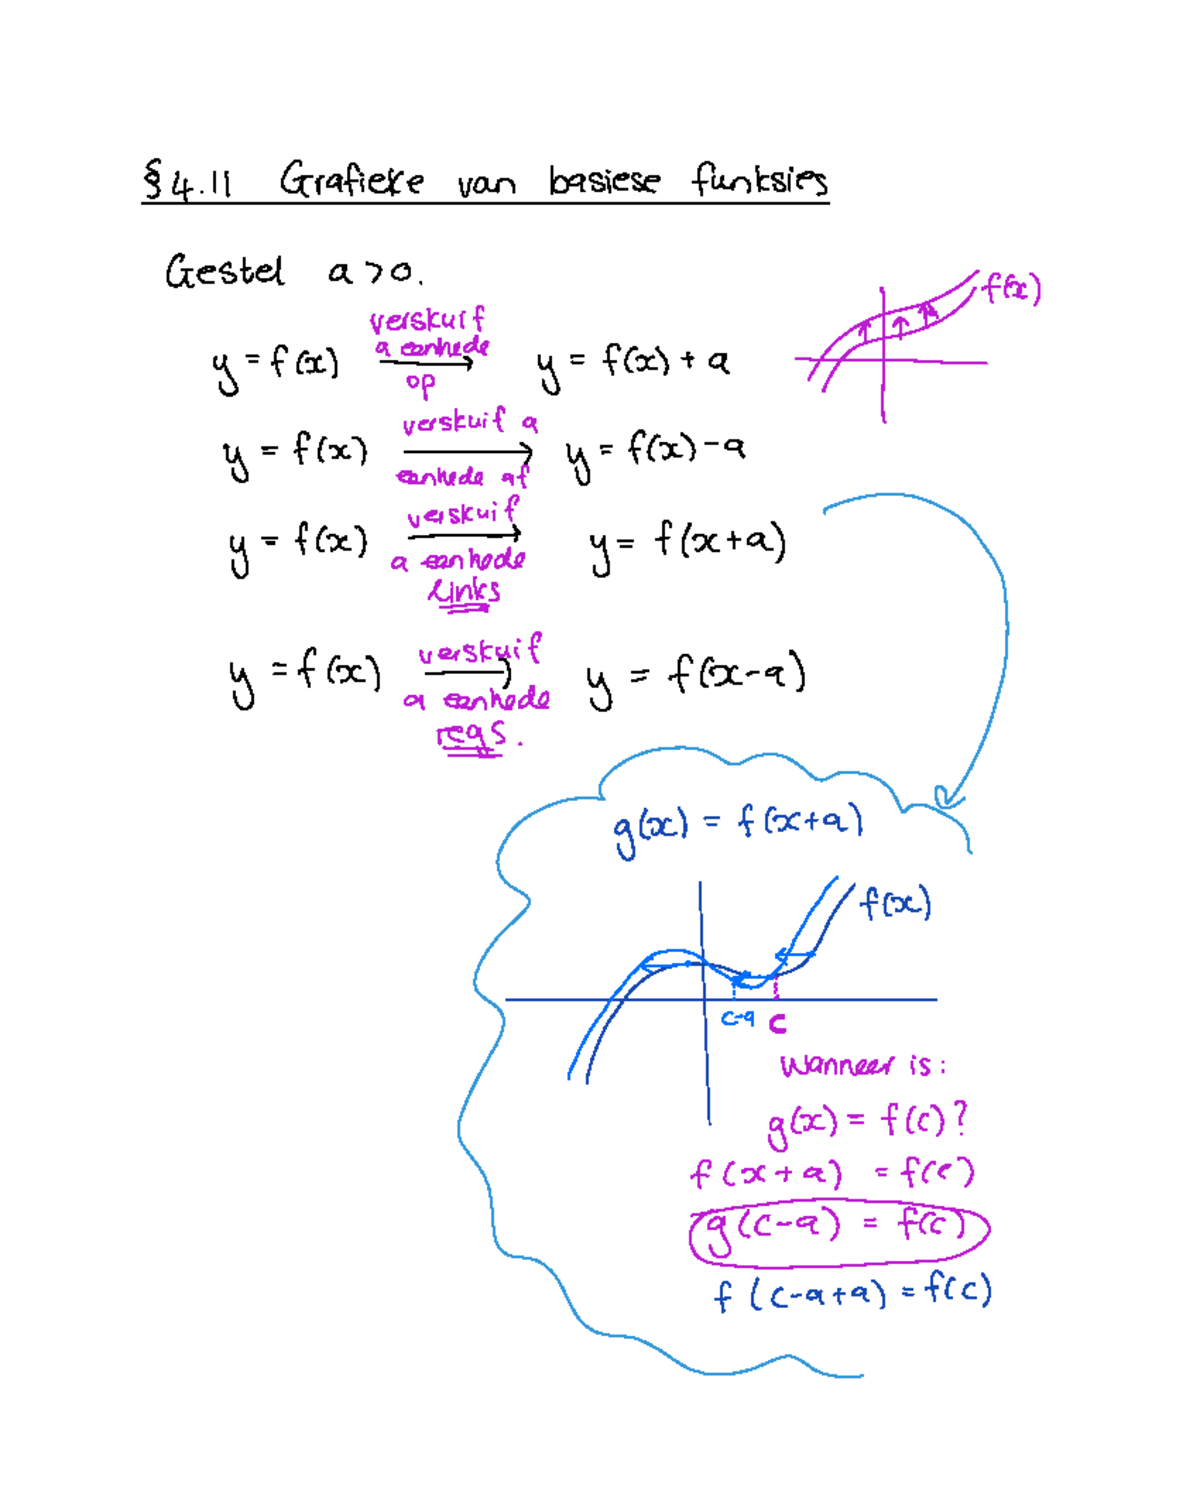 §4.11 Grafieke van basiese funksies
Gestel a>0.
f(x)
verskuif
a eenhede
y = f(x) → y = f(x) + a
op
verskuif a
y = f(x) → y = f(x) - a
eenhede af
verskuif
y = f(x) → y = f(x+a)
a eenhede
links
verskuif
y = f(x) → y = f(x-a)
a eenhede
regs.
g(x) = f(x+a)
f(x)
c-a c
Wanneer is:
g(x) = f(c)?
f(x+a) = f(c)
g(c-a) = f(c)
f(c-a+a) = f(c)